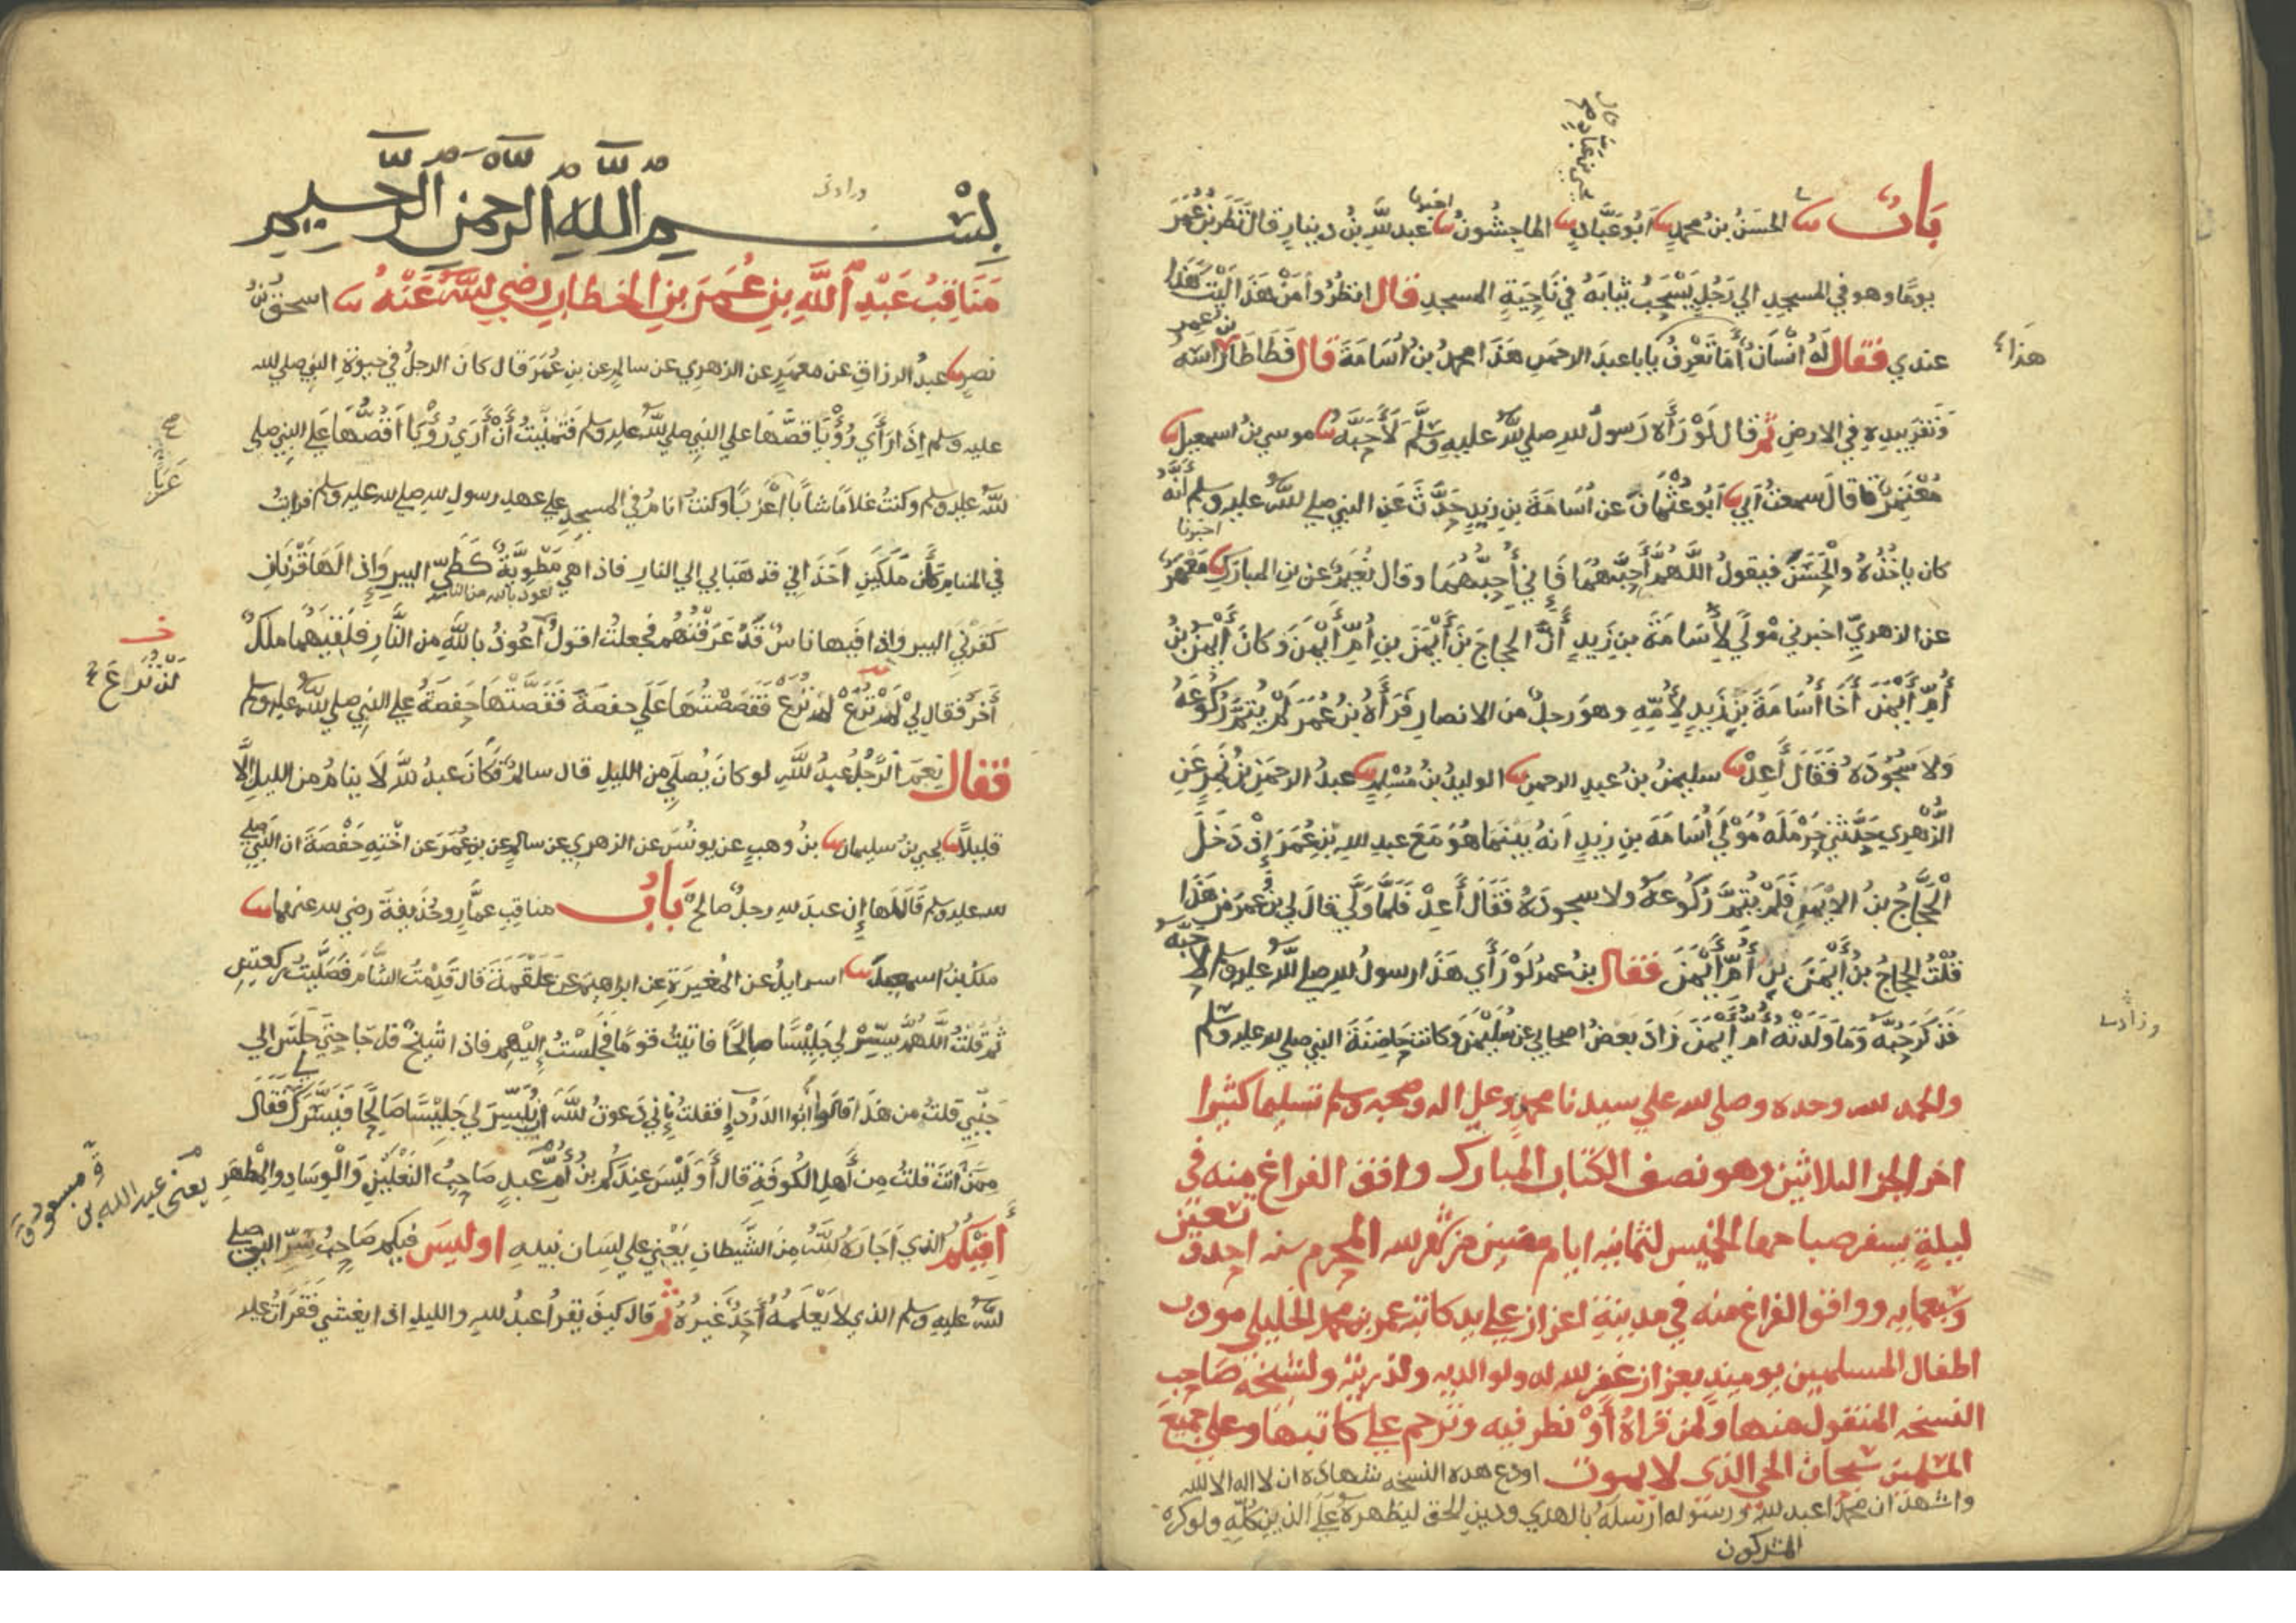 باب نا الحسن بن محمد نا ابو عباد نا الماجشون نا عبد الله بن دينار قال نظر بن عمر
يوما وهو في المسجد الي رجل يسحب ثيابه في ناحية المسجد قال انظروا من هذا ليت هذا
عندي فقال له انسان أما تعرف يابا عبد الرحمن هذا محمد بن اسامة قال فطاطا بن عمر راسه
ونقر بيديه في الارض ثم قال لو رأه رسول الله صلي الله عليه وسلم لأحبه نا موسي بن اسمعيل نا
معتمر قال سمعت أبي نا أبو عثمان عن أسامة بن زيد حدث عن النبي صلي الله عليه وسلم أنه
كان ياخذه والحسن فيقول اللهم أحبهما فإني أحبهما وقال نعيم عن بن المبارك اخبرنا معمر
عن الزهري اخبرني مولي لأسامة بن زيد أن الحجاج بن أيمن بن أم أيمن وكان أيمن بن
أم أيمن أخا أسامة بن زيد لأمه وهو رجل من الانصار فرأه بن عمر لم يتم ركوعه
ولا سجوده فقال أعد نا سليمن بن عبد الرحمن نا الوليد بن مسلم نا عبد الرحمن بن نمر عن
الزهري حدثني حرملة مولي أسامة بن زيد انه بينما هو مع عبد الله بن عمر إذ دخل
الحجاج بن الايمن فلم يتم ركوعه ولا سجوده فقال أعد فلما ولي قال لي بن عمر من هذا
قلت الحجاج بن أيمن بن أم أيمن فقال بن عمر لو رأي هذا رسول الله صلي الله عليه وسلم لاحبه
فذكر حبه وما ولدته أم أيمن زاد بعض اصحابي عن سليمن وكانت حاضنة النبي صلي الله عليه وسلم
والحمد لله وحده وصلي الله علي سيدنا محمد وعلي اله وصحبه وسلم تسليما كثيرا
اخر الجز الثلاثين وهو نصف الكتاب المبارك وافق الفراغ منه في
ليلة يسفر صباحها الخميس لثمانية ايام مضين من شهر الله المحرم سنه احدي
وسبعمايه ووافق الفراغ منه في مدينة اعزاز علي يد كاتبه عمر بن محمد الخليلي مودب
اطفال المسلمين يوميذ بعزاز غفر الله له ولوالديه ولذريته ولشيخه صاحب
النسخه المنقول منها ولمن قراه أو نظر فيه وترحم علي كاتبها وعلي جميع
المسلمين سبحان الحي الذي لا يموت اودع هذه النسخه شهادة ان لا اله الا الله
واشهد ان محمدا عبد الله ورسوله ارسله بالهدي ودين الحق ليظهره علي الدين كله ولو كره
المشركون
هذا
بسم الله الرحمن الرحيم
مناقب عبد الله بن عمر بن الخطاب رضي الله عنه نا اسحق بن
نصر نا عبد الرزاق عن معمر عن الزهري عن سالم عن بن عمر قال كان الرجل في حيوة النبي صلي الله
عليه وسلم إذا رأي رؤيا قصها علي النبي صلي الله عليه وسلم فتمنيت أن أري رؤيا أقصها علي النبي صلي
الله عليه وسلم وكنت غلاما شابا أعزبا وكنت انام في المسجد علي عهد رسول الله صلي الله عليه وسلم فرايت
في المنام كأن ملكين اخذاني فذهبا بي إلي النار فاذا هي مطوية كطي البير وإذا لها قرنان
كقرني البير وإذا فيها ناس قد عرفتهم فجعلت اقول أعوذ بالله من النار فلقيهما ملك
أخر فقال لي لن ترع لن ترع فقصصتها علي حفصة فقصتها حفصة علي النبي صلي الله عليه وسلم
فقال نعم الرجل عبد الله لو كان يصلي من الليل قال سالم فكان عبد الله لا ينام من الليل إلا
قليلا نا يحيي بن سليمان نا بن وهب عن يونس عن الزهري عن سالم عن بن عمر عن اخته حفصة ان النبي صلي
الله عليه وسلم قال لها إن عبد الله رجل صالح باب مناقب عمار وحذيفة رضي الله عنهما نا
ملك بن اسمعيل نا اسرايل عن المغيرة عن ابراهيم عن علقمة قال قدمت الشام فصليت ركعتين
ثم قلت اللهم يسر لي جليسا صالحا فاتيت قوما فجلست إليهم فاذا شيخ قد جا حتي جلس الي
جنبي قلت من هذا قالوا أبوا الدردإ فقلت إني دعوت الله أن ييسر لي جليسا صالحا فيسرك لي فقال
ممن انت قلت من أهل الكوفة قال أوليس عندكم بن أم عبد صاحب النعلين والوساد والمطهر
أفيكم الذي أجاره الله من الشيطان يعني علي لسان نبيه اوليس فيكم صاحب سر النبي صلي
الله عليه وسلم الذي لا يعلمه أحد غيره ثم قال كيف يقرأ عبد الله والليل اذا يغشي فقرأت عليه
عزبا
لن تراع
يعني عبد الله بن مسعود